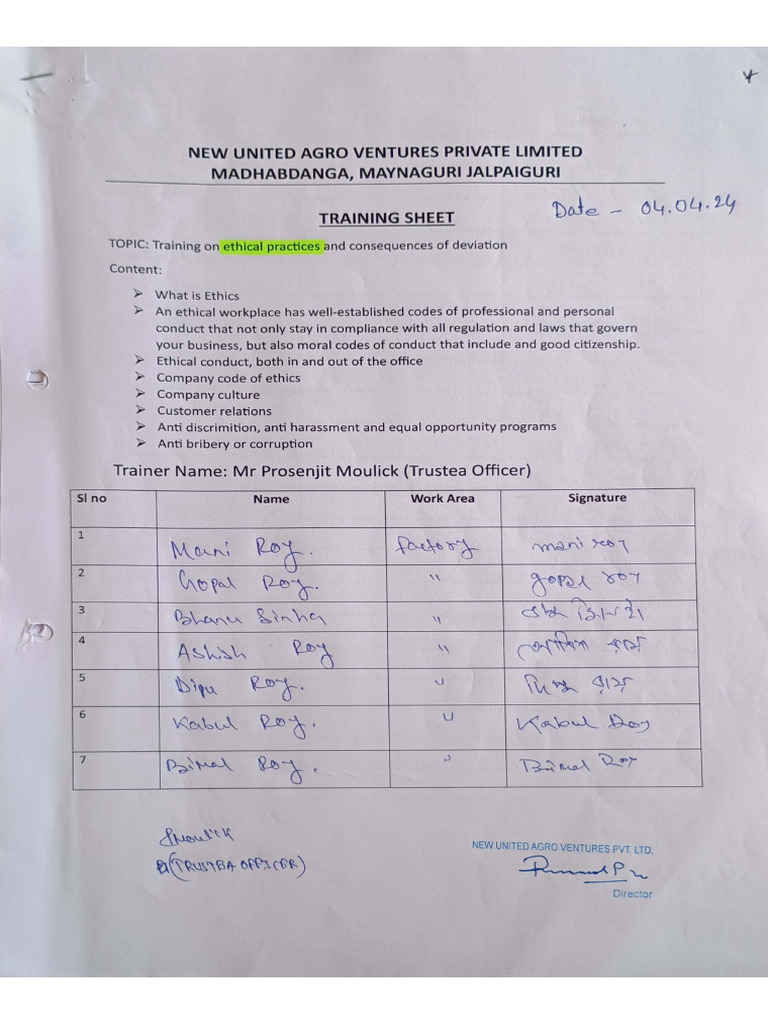 NEW UNITED AGRO VENTURES PRIVATE LIMITED
MADHABDANGA, MAYNAGURI JALPAIGURI
Date - 04.04.24
TRAINING SHEET
TOPIC: Training on ethical practices and consequences of deviation
Content:
➢ What is Ethics
➢ An ethical workplace has well-established codes of professional and personal
conduct that not only stay in compliance with all regulation and laws that govern
your business, but also moral codes of conduct that include and good citizenship.
➢ Ethical conduct, both in and out of the office
➢ Company code of ethics
➢ Company culture
➢ Customer relations
➢ Anti discrimition, anti harassment and equal opportunity programs
➢ Anti bribery or corruption
Trainer Name: Mr Prosenjit Moulick (Trustea Officer)
Sl no Name Work Area Signature
1 Mani Roy. factory mani roy
2 Gopal Roy. " gopal roy
3 Bhanu Sinha "
4 Ashish Roy " আশিস রায়
5 Dipu Roy. "
6 Kabul Roy. " Kabul Roy
7 Bimal Roy. " Bimal Roy
PMoulick
(TRUSTEA OFFICER)
NEW UNITED AGRO VENTURES PVT. LTD.
Director